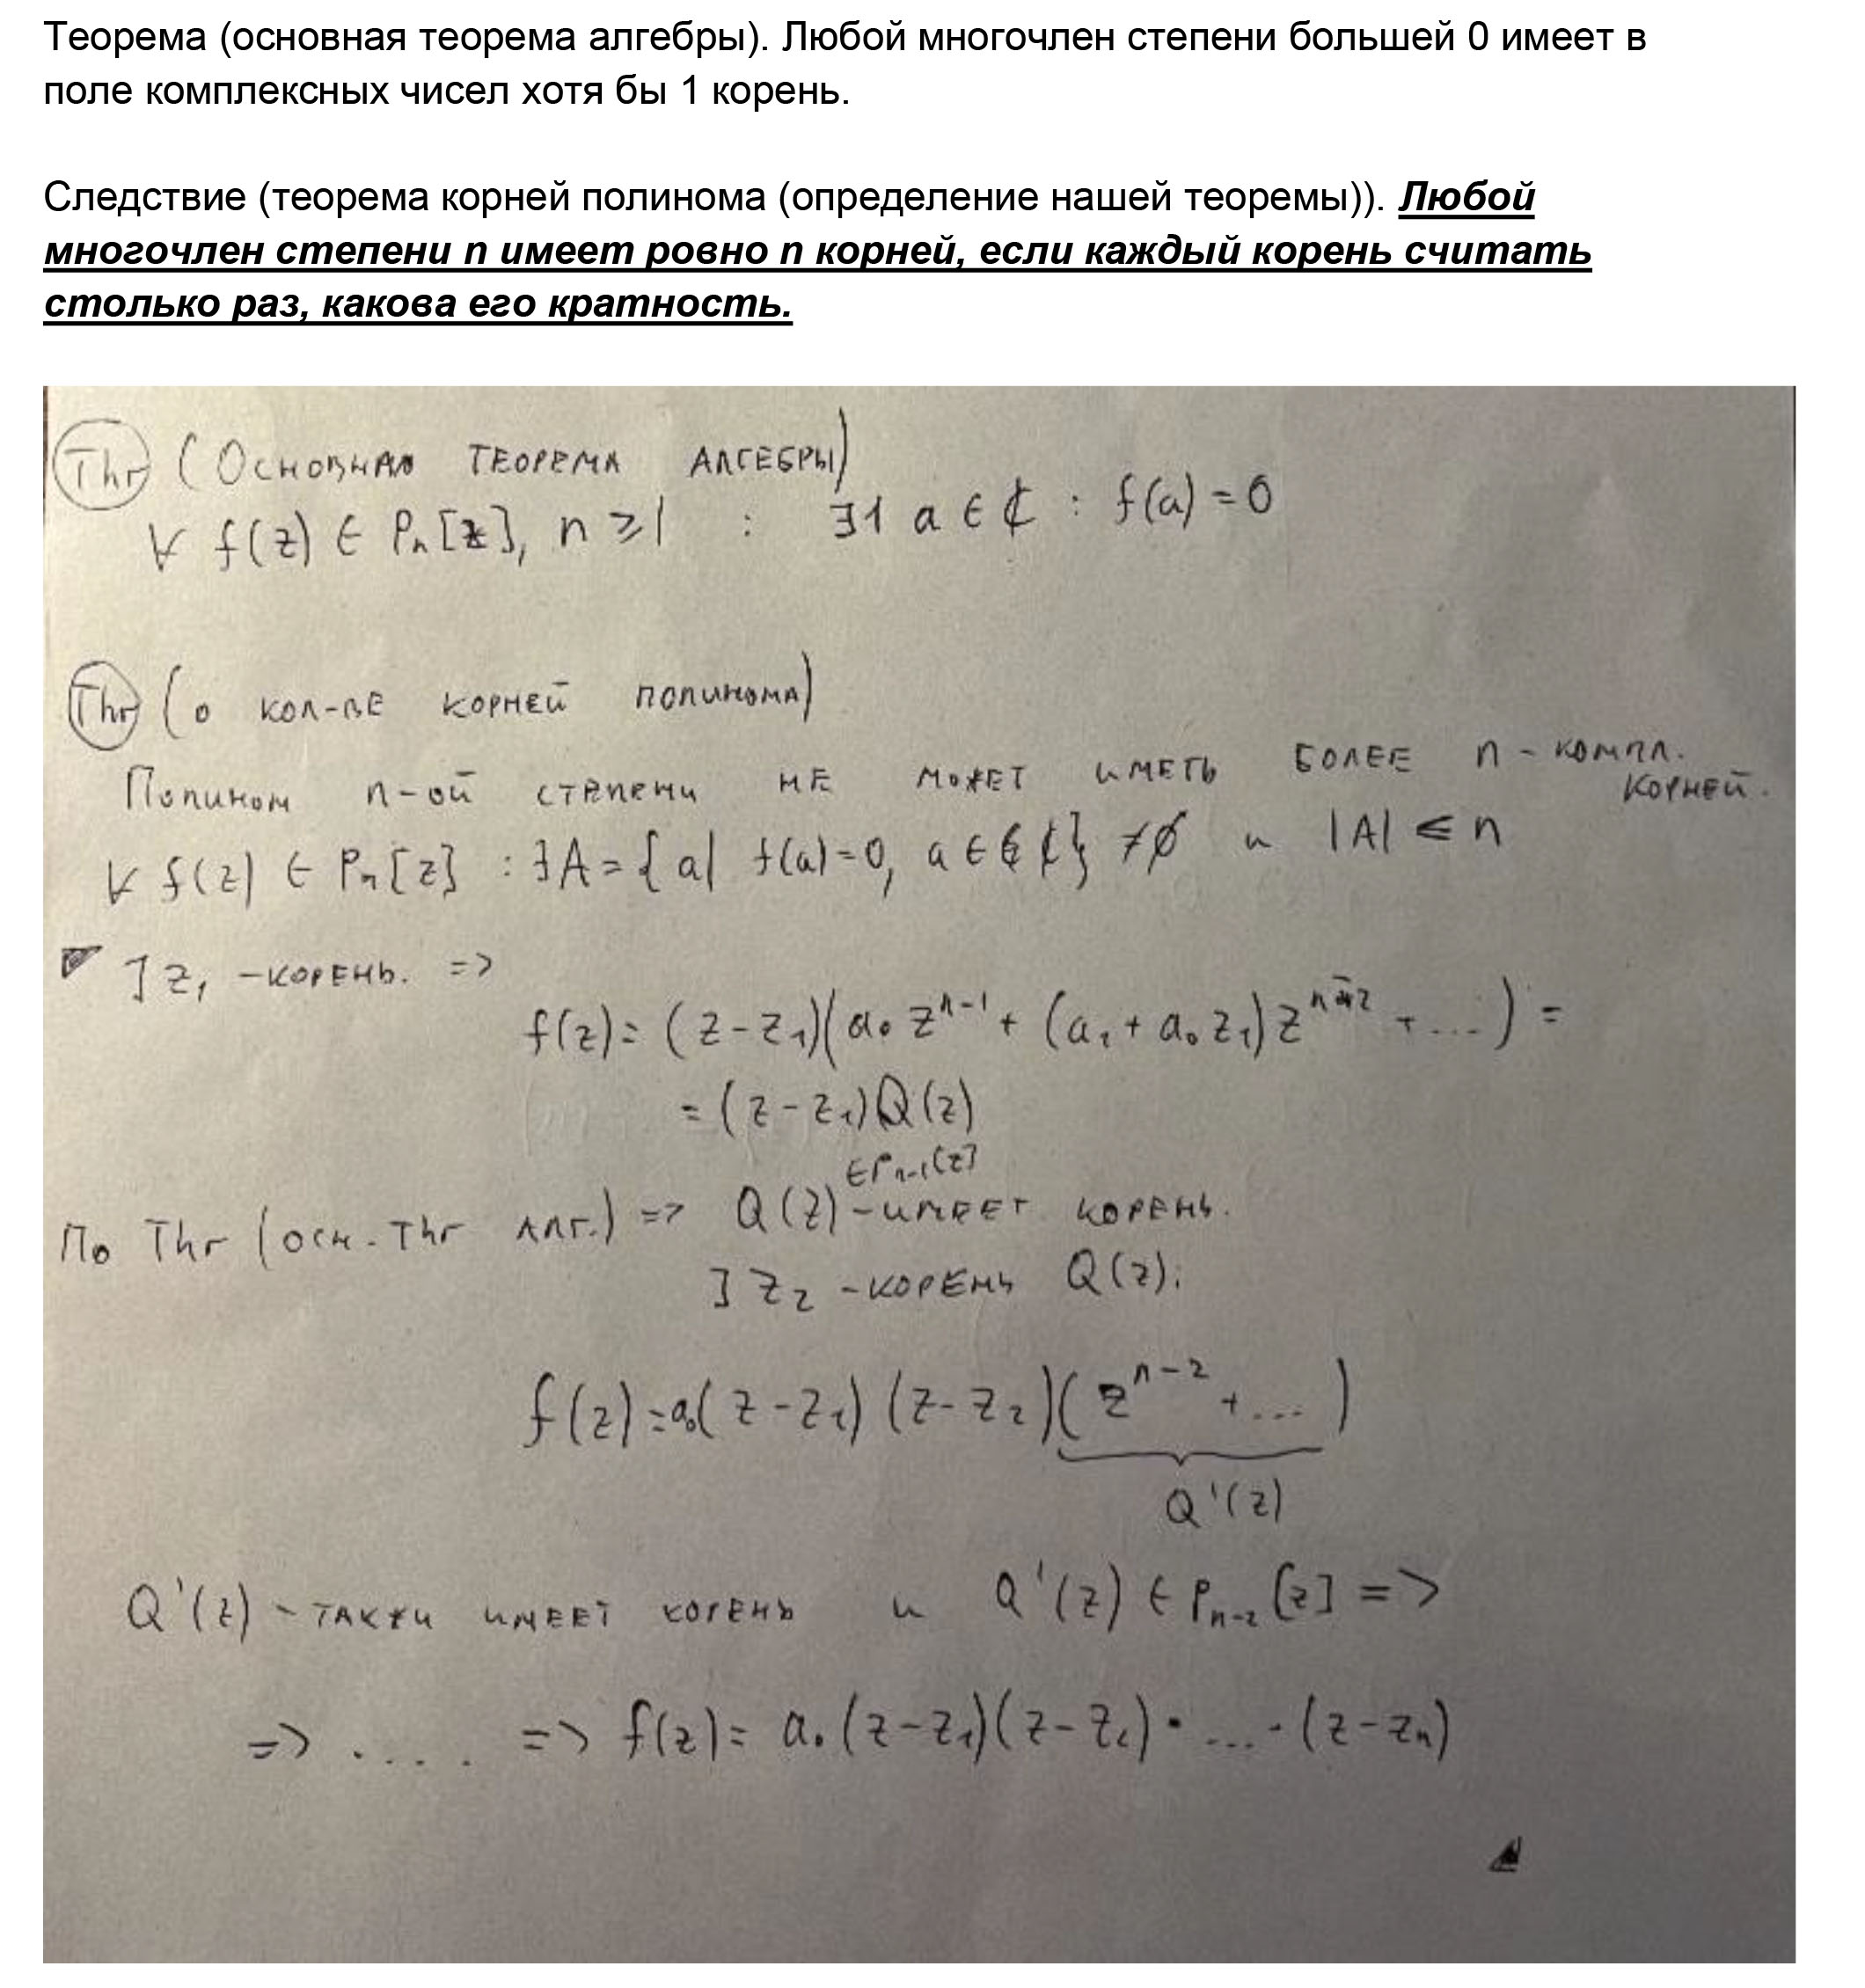 Теорема (основная теорема алгебры). Любой многочлен степени большей 0 имеет в
поле комплексных чисел хотя бы 1 корень.
Следствие (теорема корней полинома (определение нашей теоремы)). Любой
многочлен степени n имеет ровно n корней, если каждый корень считать
столько раз, какова его кратность.
Thr (Основная теорема алгебры)
∀ f(z) ∈ Pₙ[z], n ⩾ 1 : ∃1 a ∈ ℂ : f(a) = 0
Thr (о кол-ве корней полинома)
Полином n-ой степени не может иметь более n - компл.
корней.
∀ f(z) ∈ Pₙ[z] : ∃ A = {a| f(a)=0, a ∈ ℂ} ≠ ∅ и |A| ⩽ n
] z₁ - корень. =>
f(z) = (z - z₁)(a₀ zⁿ⁻¹ + (a₁ + a₀ z₁) zⁿ⁻² + ...) =
= (z - z₁) Q(z)
∈ Pₙ₋₁[z]
По Thr (осн. Thr алг.) => Q(z) - имеет корень.
] z₂ - корень Q(z).
f(z) = a₀(z - z₁)(z - z₂)(zⁿ⁻² + ...)
Q'(z)
Q'(z) - также имеет корень и Q'(z) ∈ Pₙ₋₂[z] =>
=> .... => f(z) = a₀ (z - z₁)(z - z₂) · ... · (z - zₙ)